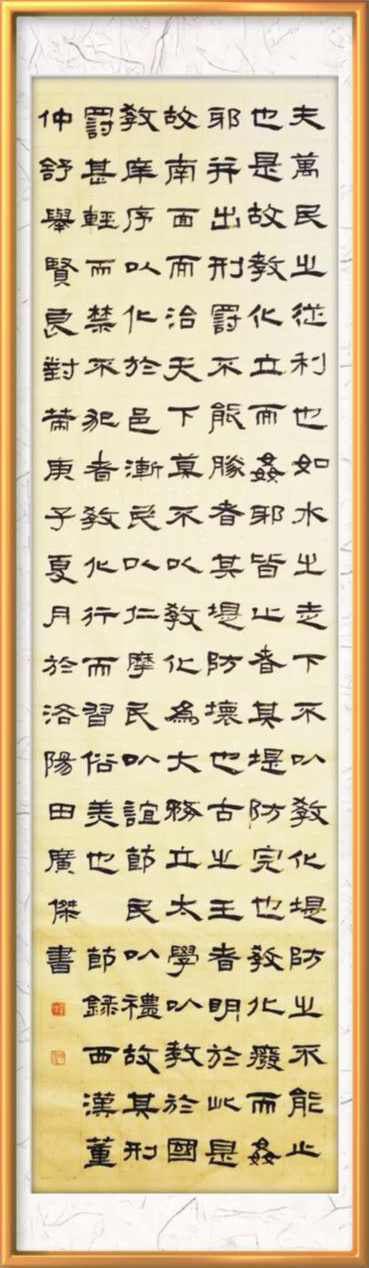 夫萬民之從利也如水之走下不以教化堤防之不能止
也是故教化立而姦邪皆止者其堤防完也教化廢而姦
邪并出刑罰不能勝者其堤防壞也古之王者明於此是
故南面而治天下莫不以教化為大務立太學以教於國
教庠序以化於邑漸民以仁摩民以誼節民以禮故其刑
罰甚輕而禁不犯者教化行而習俗美也 節錄西漢董
仲舒舉賢良對策庚子夏月於洛陽田廣傑書